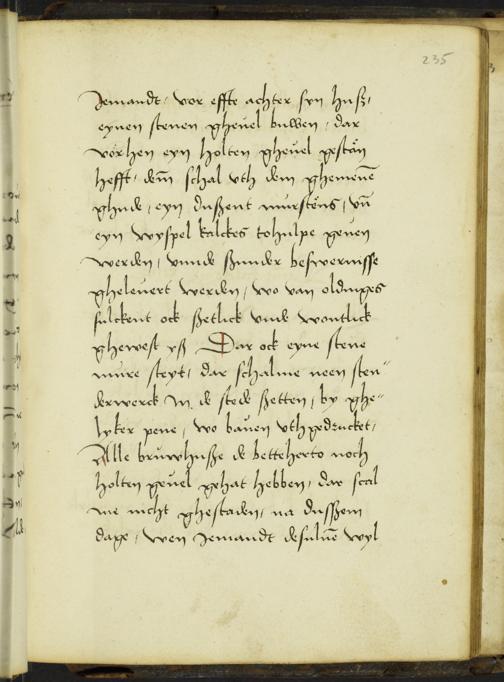 235
Jemandt, vor effte achter syn husz,
eynen stenen gheuel buwen, dar
vorhen eyn holten gheuel gestan
hefft, dem̄ schal vth dem ghemene̅
ghude, eyn duszent murstens, vn̄
eyn wyspel kalckes tohulpe geuen
werden, vnnde szunder beswernisse
gheleuert werden, wo van oldinges
sulckent ock szetlick vnde wontlick
ghewest ysz Dar ock eyne stene
mure steyt, dar schalme neen sten⸗
derwerck in de stede szetten, by ghe⸗
lyker pene, wo bauen vthgedrucket,
Alle bruwhusze de betteherto noch
holten geuel gehat hebben, dar scal
me nicht ghestaden, na dusszem
dage, wen Jemandt desulue̅ wyl